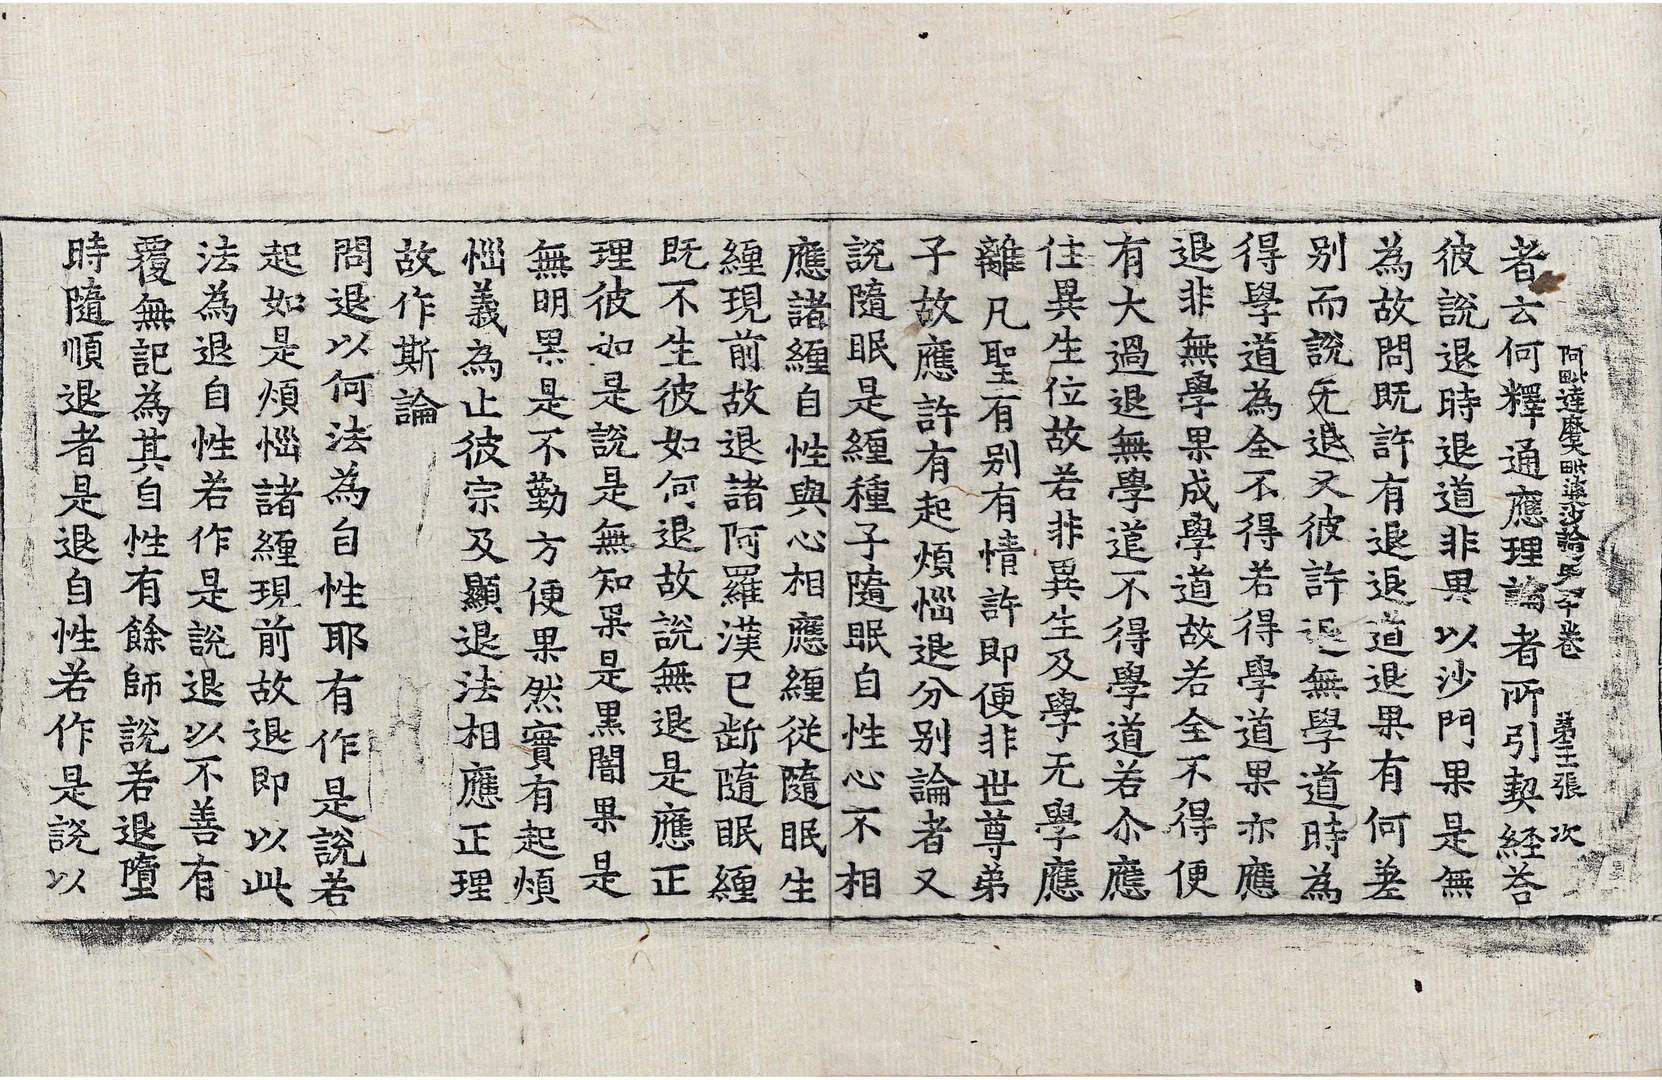 阿毗達磨毗婆沙論第六十卷 第三張 次
者云何釋通應理論者所引契經荅
彼說退時退道非果以沙門果是無
為故問既許有退退道退果有何差
別而說无退又彼許退無學道時為
得學道為全不得若得學道果亦應
退非無學果成學道故若全不得便
有大過退無學道不得學道若尒應
住異生位故若非異生及學无學應
離凡聖有別有情許即便非世尊弟
子故應許有起煩惱退分別論者又
說隨眠是纏種子隨眠自性心不相
應諸纏自性與心相應纏從隨眠生
纏現前故退諸阿羅漢已斷隨眠纏
既不生彼如何退故說無退是應正
理彼如是說是無知果是黑闇果是
無明果是不勤方便果然實有起煩
惱義為止彼宗及顯退法相應正理
故作斯論
問退以何法為自性耶有作是說若
起如是煩惱諸纏現前故退即以此
法為退自性若作是說退以不善有
覆無記為其自性有餘師說若退墮
時隨順退者是退自性若作是說以